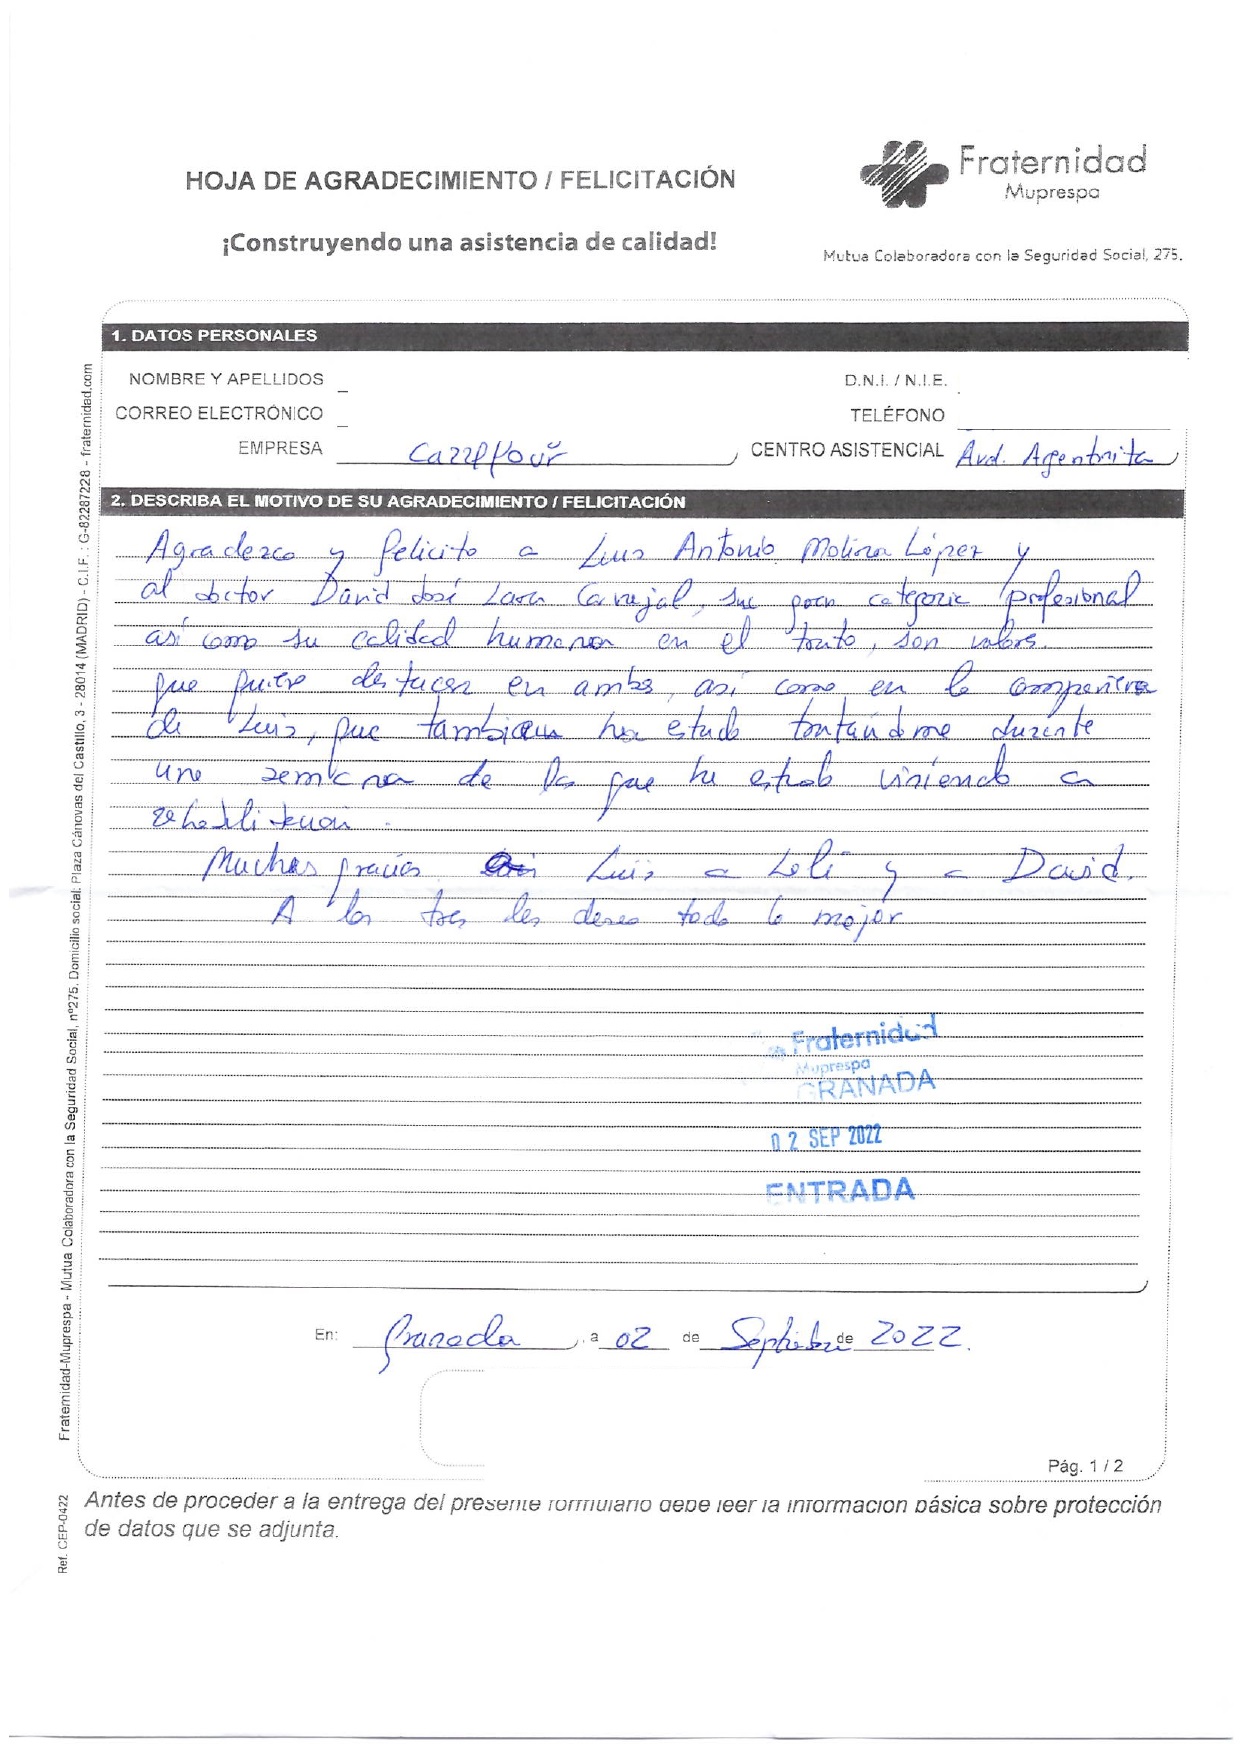 HOJA DE AGRADECIMIENTO / FELICITACIÓN
¡Construyendo una asistencia de calidad!
Fraternidad
Muprespa
Mutua Colaboradora con la Seguridad Social, 275.
1. DATOS PERSONALES
NOMBRE Y APELLIDOS
D.N.I. / N.I.E.
CORREO ELECTRÓNICO
TELÉFONO
EMPRESA Carrefour
CENTRO ASISTENCIAL Avd. Argentinita
2. DESCRIBA EL MOTIVO DE SU AGRADECIMIENTO / FELICITACIÓN
Agradezco y felicito a Luis Antonio Molina López y
al doctor David José Lara Carvajal, su gran categoria profesional
así como su calidad humana en el trato, son valores
que quiero destacar en ambos, así como en la compañera
de Luis, que tambien ha estado tratándome durante
una semana de las que he estado viniendo a
rehabilitacion.
Muchas gracias Luis a Loli y a David.
A los tres les deseo todo lo mejor
Fraternidad
Muprespa
GRANADA
02 SEP 2022
ENTRADA
En: Granada, a 02 de Septiembre de 2022.
Pág. 1 / 2
Antes de proceder a la entrega del presente formulario debe leer la información básica sobre protección
de datos que se adjunta.
Fraternidad-Muprespa - Mutua Colaboradora con la Seguridad Social, nº275. Domicilio social: Plaza Cánovas del Castillo, 3 - 28014 (MADRID) - C.I.F.: G-82287228 - fraternidad.com
Ref. CEP-0422